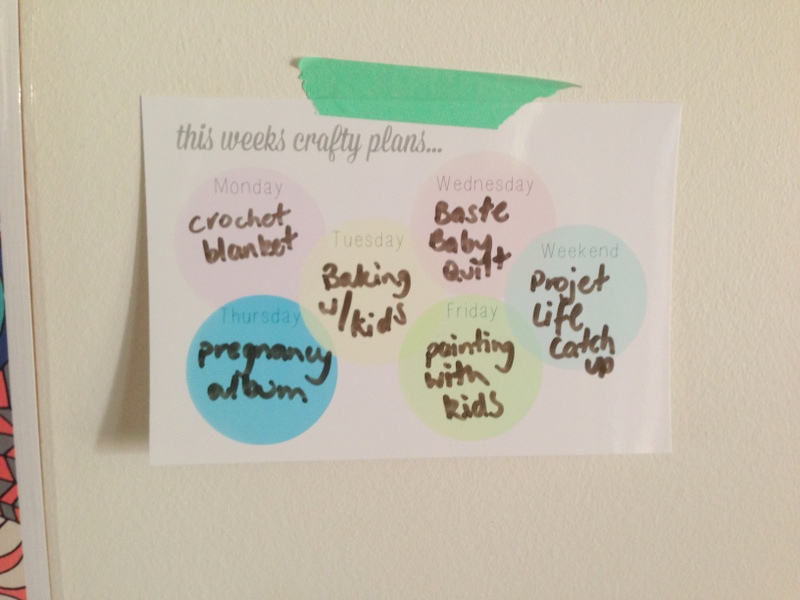 this weeks crafty plans...
Monday
crochet
blanket
Tuesday
Baking
w/kids
Wednesday
Baste
Baby
Quilt
Thursday
pregnancy
album
Friday
painting
with
kids
Weekend
Projet
Life
Catch
up